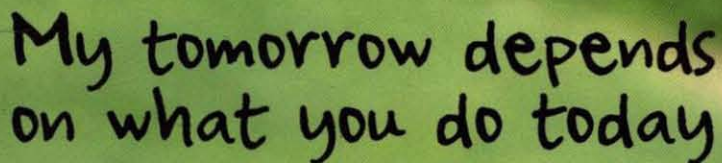 My tomorrow depends
on what you do today